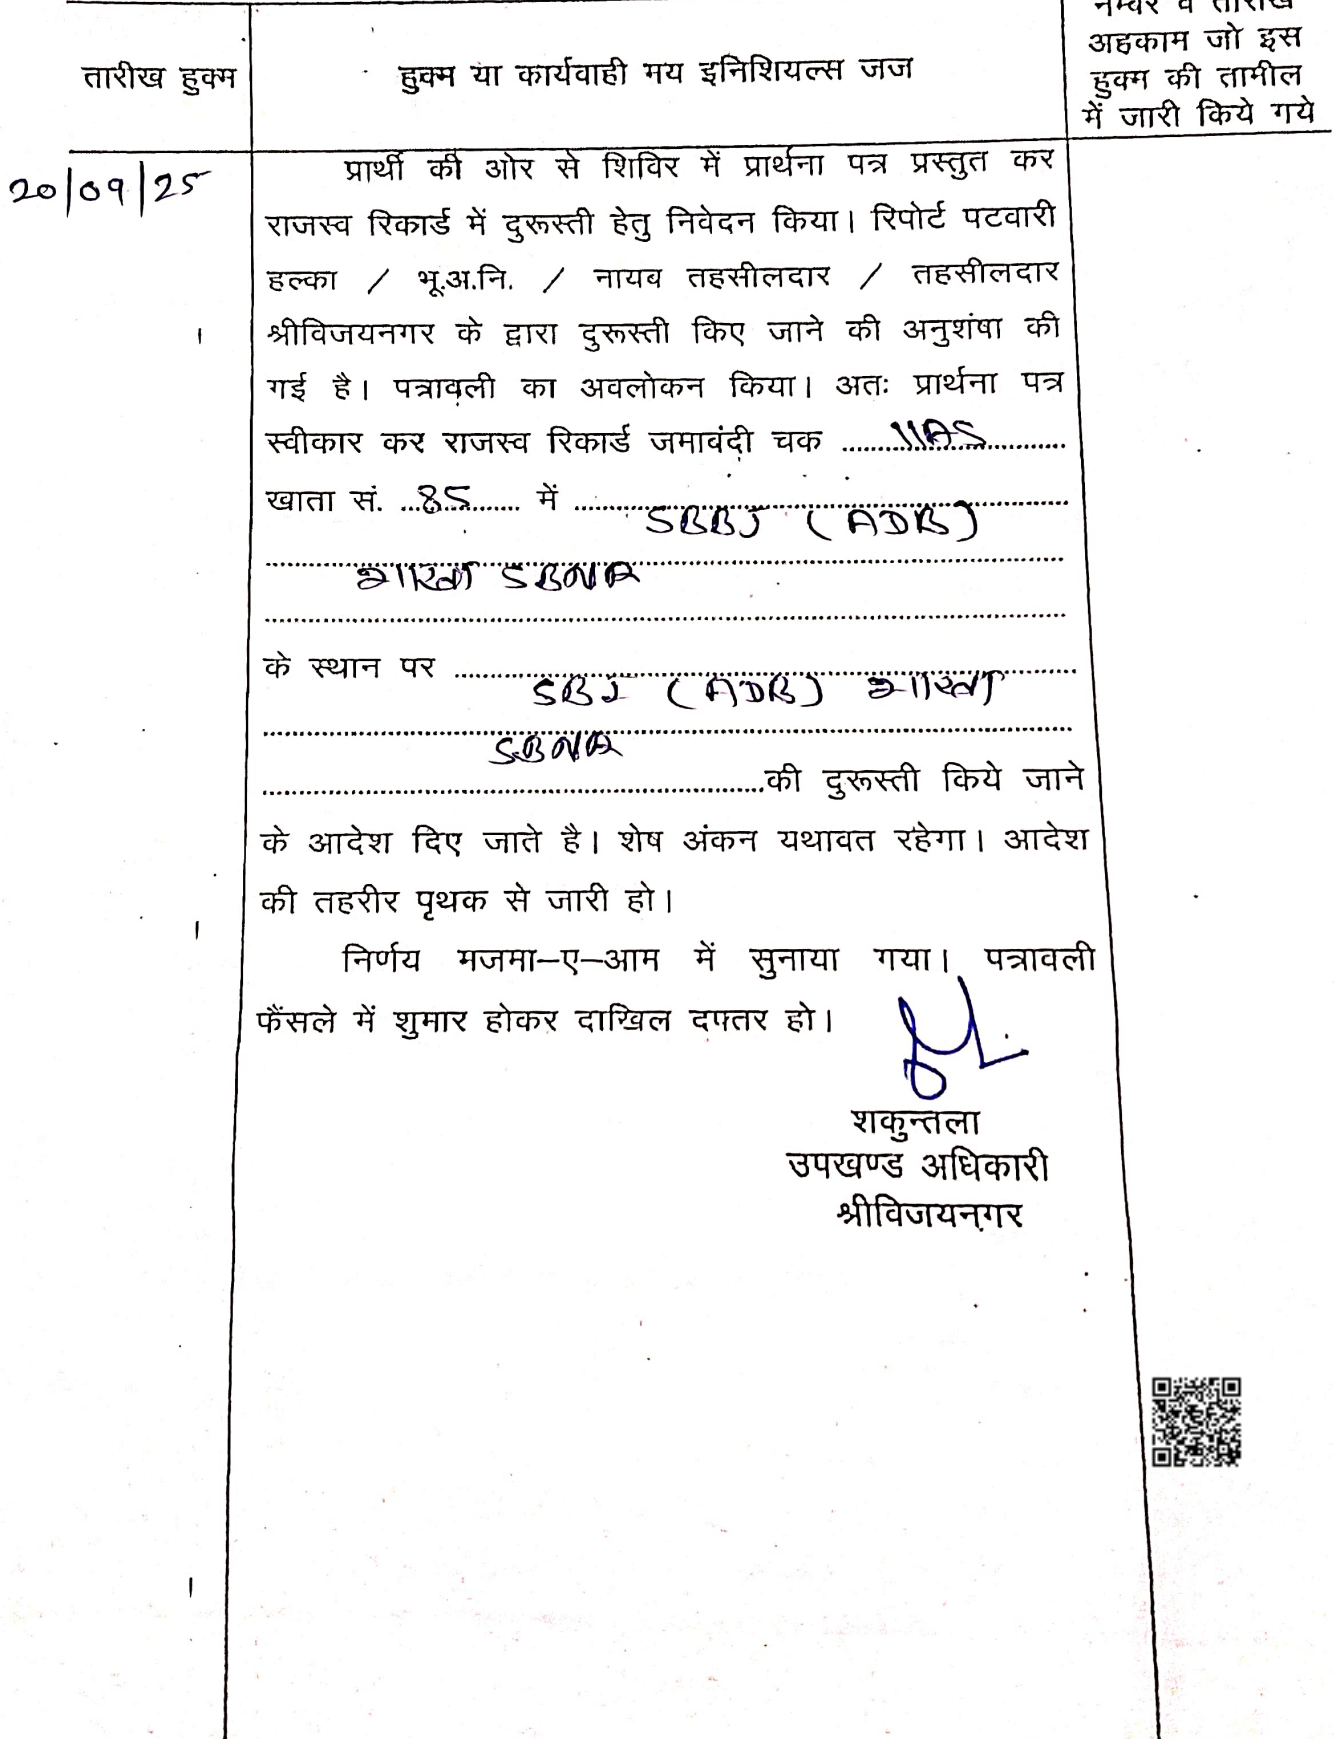 नम्बर व तारीख
अहकाम जो इस
हुक्म की तामील
में जारी किये गये
तारीख हुक्म
हुक्म या कार्यवाही मय इनिशियल्स जज
20/09/25
प्रार्थी की ओर से शिविर में प्रार्थना पत्र प्रस्तुत कर
राजस्व रिकार्ड में दुरूस्ती हेतु निवेदन किया। रिपोर्ट पटवारी
हल्का / भू.अ.नि. / नायब तहसीलदार / तहसीलदार
श्रीविजयनगर के द्वारा दुरूस्ती किए जाने की अनुशंषा की
गई है। पत्रावली का अवलोकन किया। अतः प्रार्थना पत्र
स्वीकार कर राजस्व रिकार्ड जमाबंदी चक 11AS
खाता सं. 85 में
SBBJ (ADB)
शाखा SBNR
के स्थान पर
SBI (ADB) शाखा
SBNR
की दुरूस्ती किये जाने
के आदेश दिए जाते है। शेष अंकन यथावत रहेगा। आदेश
की तहरीर पृथक से जारी हो।
निर्णय मजमा–ए–आम में सुनाया गया। पत्रावली
फैंसले में शुमार होकर दाखिल दफ्तर हो।
शकुन्तला
उपखण्ड अधिकारी
श्रीविजयनगर